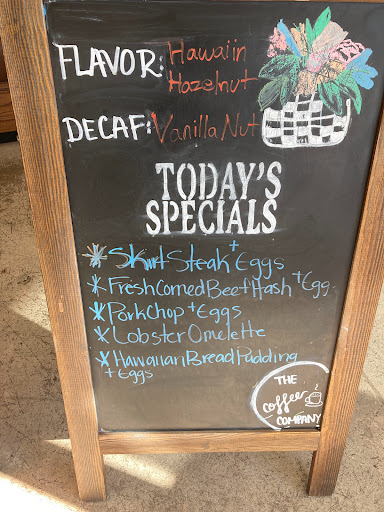 FLAVOR: Hawaiin
Hazelnut
DECAF: Vanilla Nut
TODAY'S
SPECIALS
* Skirt Steak + Eggs
* Fresh Corned Beef Hash + Egg
* Pork Chop + Eggs
* Lobster Omelette
* Hawaiian Bread Pudding
+ Eggs
THE
Coffee
COMPANY